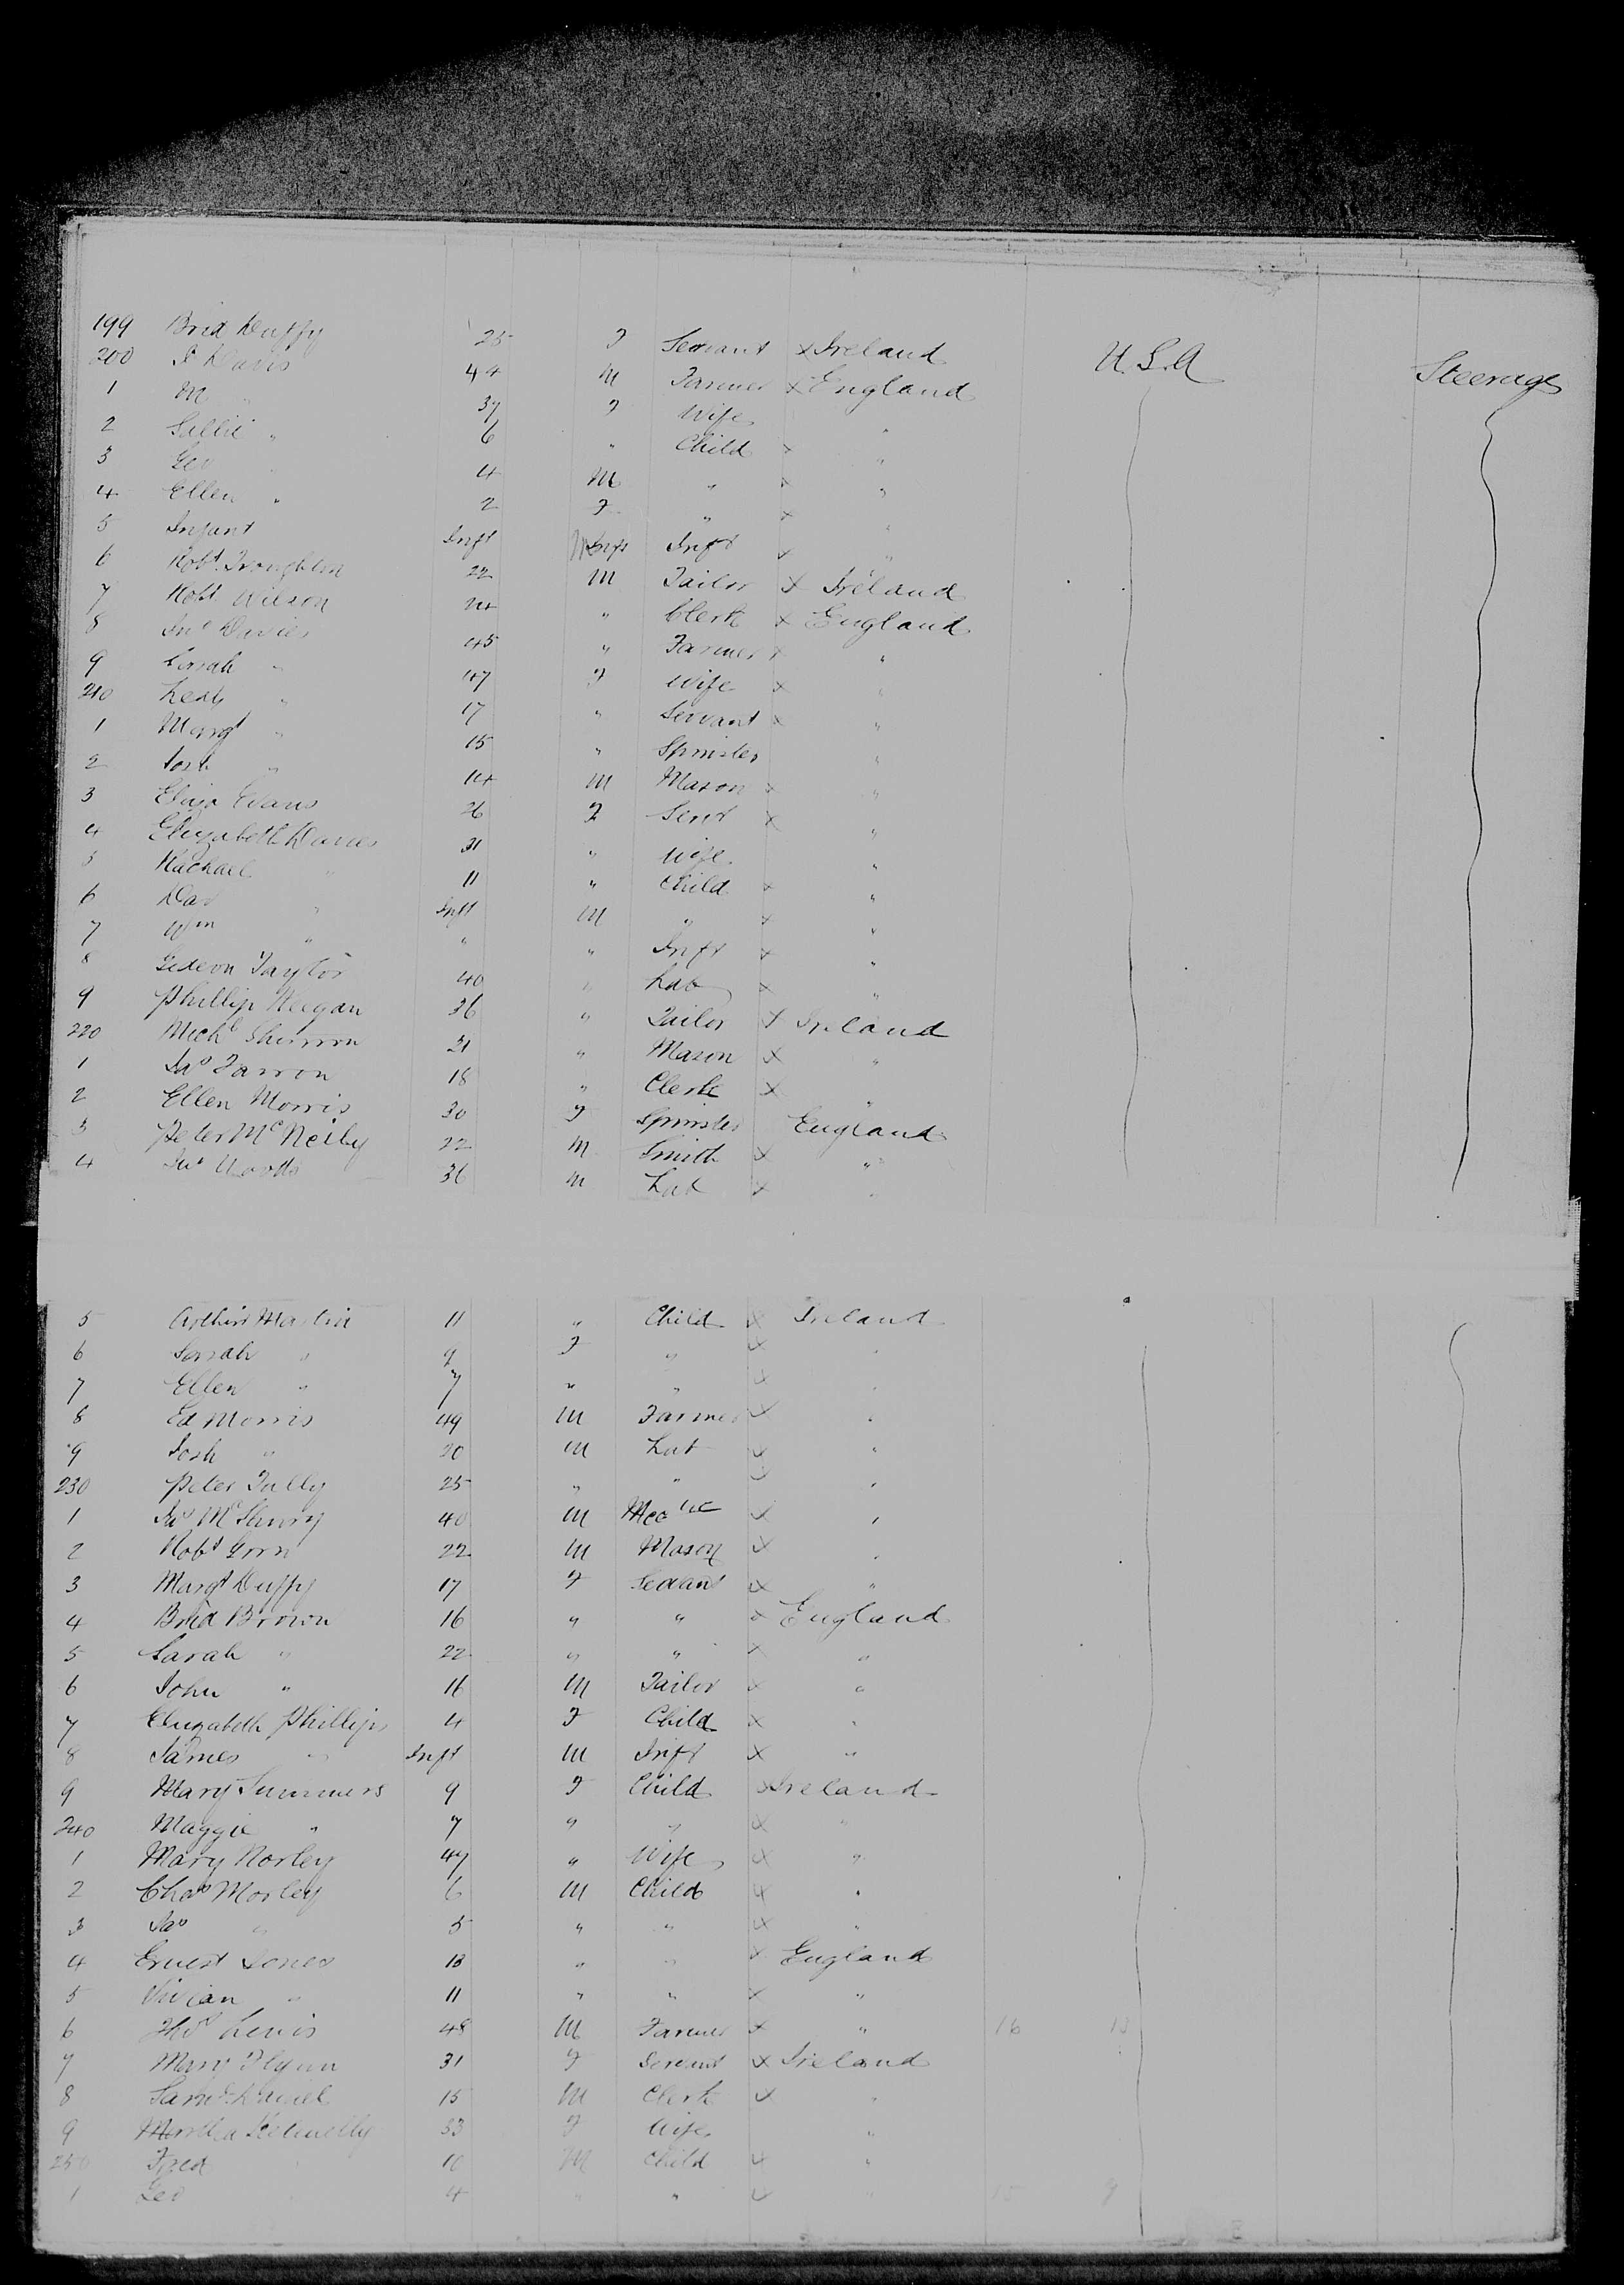 199 Brid Duffy 25 F Servant x Ireland U.S.A Steerage
200 Davis 44 M Farmer x England
1 M " 37 F Wife "
2 " 6 " Child x "
3 Geo " 4 M " x "
4 Ellen " 2 F " x "
5 Infant Inft Inft x "
6 Robt 22 M Tailor x Ireland
7 Robt Wilson 24 " Clerk x England
8 Jno Davies 45 " Farmer x "
9 Sarah " 47 F Wife x "
210 " 17 " Servant x "
1 Margt " 15 " Spinster "
2 Josh " 14 M Mason x "
3 Eliza Evans 26 F Servt x "
4 Elizabeth Davies 31 " Wife "
5 Rachael " 11 " Child x "
6 Dav " Inft M " x "
7 Wm " " " Inft x "
8 Gideon Taylor 40 " Lab x "
9 Phillip Keegan 36 " Tailor x Ireland
220 Michl 21 " Mason x "
1 Jas Farron 18 " Clerk x "
2 Ellen Morris 30 F Spinster England
3 Peter McNeily 22 M Smith x "
4 Woods 36 M Lab x "
5 Arthur Martin 11 " Child x Ireland
6 Sarah " 9 F " x "
7 Ellen " 7 " " x "
8 Ed Morris 49 M Farmer x "
9 Josh " 20 M Lab x "
230 Peter Tully 25 " " x "
1 Jas 40 M x "
2 Robt 22 M Mason x "
3 Margt Duffy 17 F Servant x "
4 Brid Brown 16 " " x England
5 Sarah " 22 " " x "
6 John " 16 M Tailor x "
7 Elizabeth Phillips 4 F Child x "
8 James " Inft M Inft x "
9 Mary Summers 9 F Child x Ireland
240 Maggie " 7 " " x "
1 Mary Morley 47 " Wife x "
2 Chas Morley 6 M Child x "
3 Jas " 5 " " x "
4 Ernest Jones 13 " " x England
5 Vivian " 11 " " x "
6 Thos Lewis 48 M Farmer x " 16 13
7 Mary Flynn 31 F Servant x Ireland
8 Saml Daniel 15 M Clerk x "
9 Martha 33 F Wife "
250 Fred 10 M Child x "
1 Geo 4 " " x " 15 9